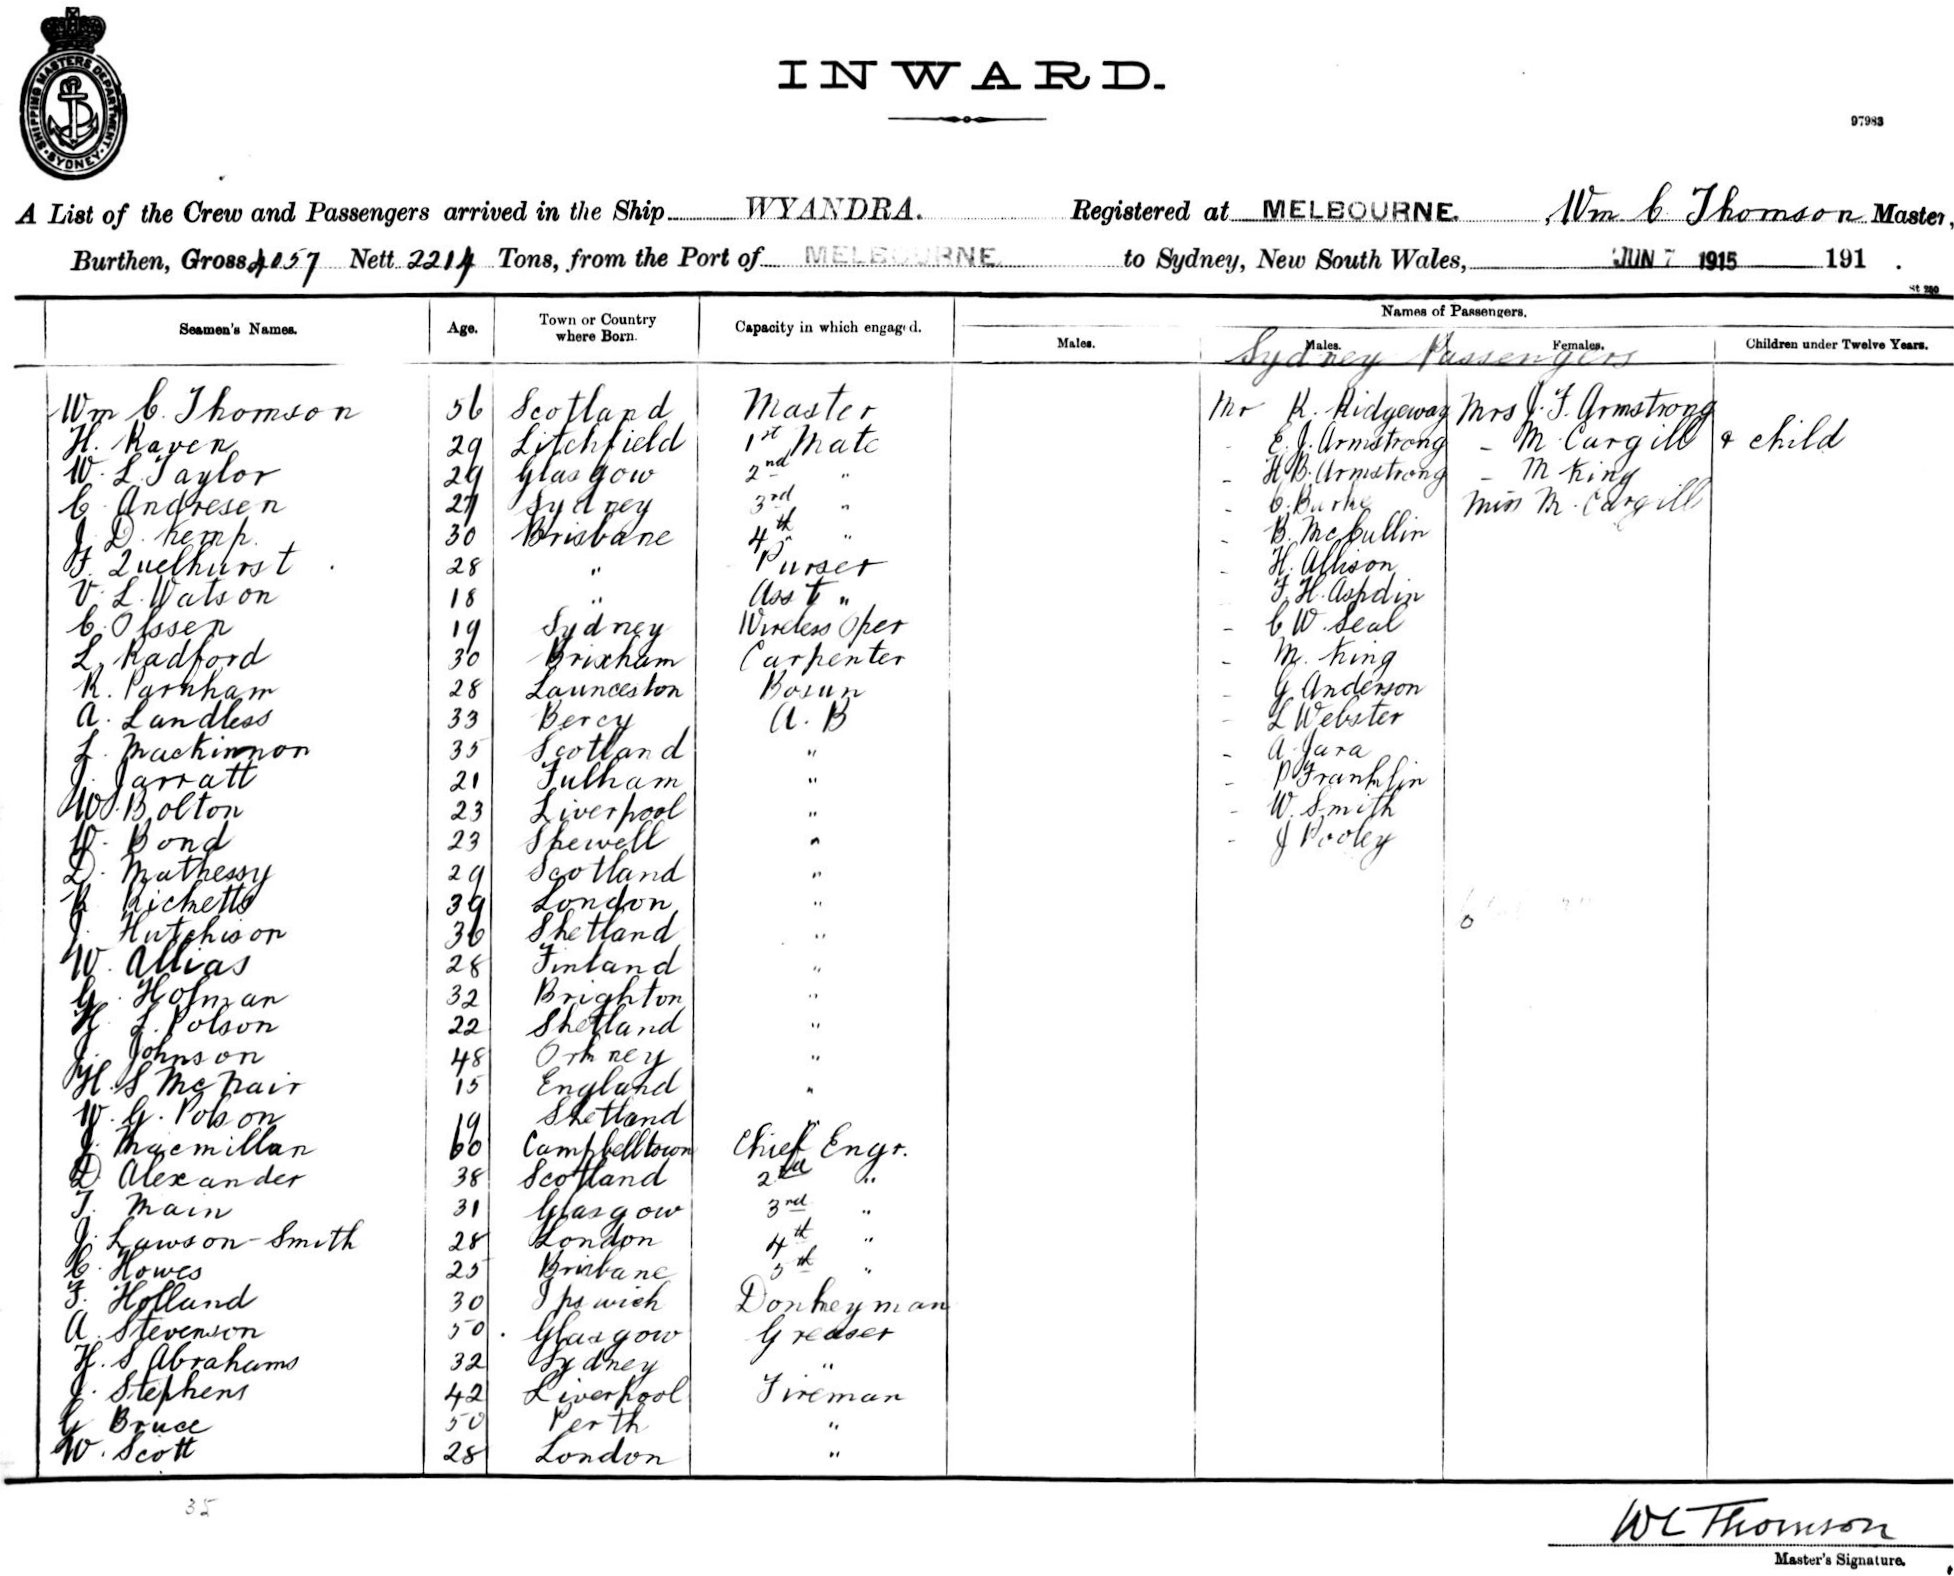 SHIPPING MASTERS DEPARTMENT · SYDNEY ·
INWARD.
97983
A List of the Crew and Passengers arrived in the Ship WYANDRA. Registered at MELBOURNE. Wm C. Thomson Master,
Burthen, Gross 4057 Nett 2214 Tons, from the Port of MELBOURNE to Sydney, New South Wales, JUN 7 1915 191 .
St 280
Seamen's Names. Age. Town or Country where Born. Capacity in which engaged. Names of Passengers.
Males. Males. Females. Children under Twelve Years.
Sydney Passengers
Wm C. Thomson 56 Scotland Master Mr R. Ridgeway Mrs J. F. Armstrong
H. Raven 29 Litchfield 1st Mate - E. J. Armstrong - M. Cargill & child
W. L. Taylor 29 Glasgow 2nd " - H. B. Armstrong - M King
C. Andresen 27 Sydney 3rd " - C. Burke Miss M. Cargill
J. D. Kemp. 30 Brisbane 4th " - B. McCullin
F. Quelhurst 28 " Purser - H. Allison
V. L. Watson 18 " Asst " F. H. Aspdin
C. Olssen 19 Sydney Wireless Oper - C W. Seal
L. Radford 30 Brixham Carpenter - M. King
R. Parnham 28 Launceston Bosun - G Anderson
A. Landless 33 Bercy A. B - L Webster
L. Mackinnon 35 Scotland " - A. Jara
J. Jarratt 21 Fulham " - P Franklin
W. Bolton 23 Liverpool " - W. Smith
W. Bond 23 Shewell " - J Pooley
D. Mathessy 29 Scotland "
R Ricketts 39 London "
J. Hutchison 36 Shetland "
W. Allias 28 Finland "
G. Holman 32 Brighton "
H L. Polson 22 Shetland "
J. Johnson 48 Orkney "
H. S McNair 15 England "
W. G. Polson 19 Shetland "
J. Macmillan 60 Campbelltown Chief Engr.
D. Alexander 38 Scotland 2nd "
T. Main 31 Glasgow 3rd "
J. Lawson-Smith 28 London 4th "
C. Howes 25 Brisbane 5th "
F. Holland 30 Ipswich Donkeyman
A. Stevenson 50 Glasgow Greaser
H. S Abrahams 32 Sydney "
J. Stephens 42 Liverpool Fireman
G Bruce 50 Perth "
W. Scott 28 London "
35
WC Thomson
Master's Signature.